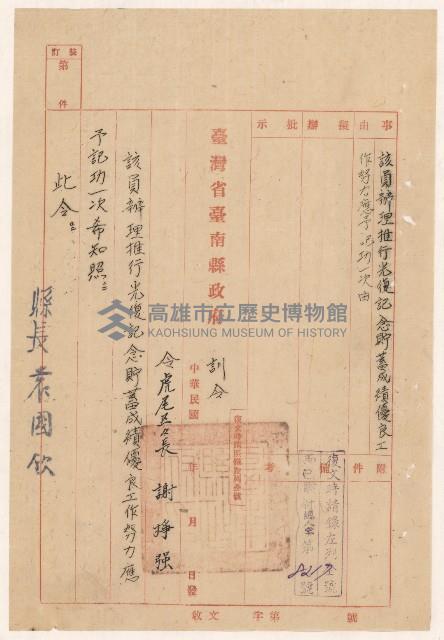 裝訂
第
件
事由
擬辦
批示
該員辦理推行光復記念貯蓄成績優良工
作努力應予記功一次由
附件
備考
臺灣省臺南縣政府
訓令
中華民國
年
月
日發
復文時請錄左列全號
第
8217
號
令虎尾區區長
謝掙强
該員辦理推行光復記念貯蓄成績優良工作努力應
予記功一次希知照
此令
縣長袁國欽
字第
號
高雄市立歷史博物館
KAOHSIUNG MUSEUM OF HISTORY